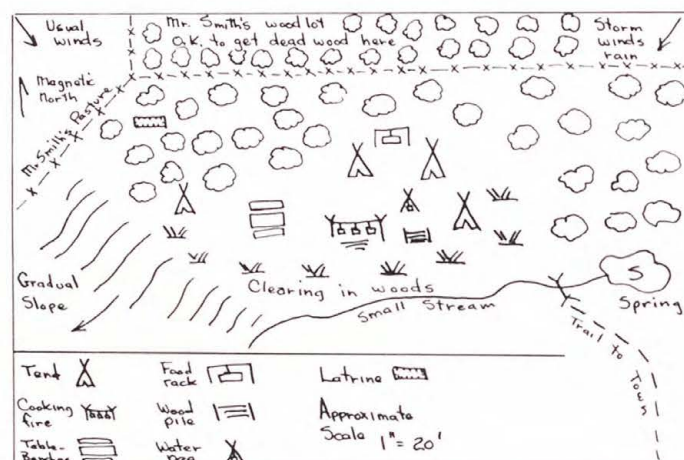 Usual
winds
Mr. Smith's wood lot
O.K. to get dead wood here
Storm
winds
rain
Magnetic
North
Mr. Smith's Pasture
Gradual
Slope
Clearing in woods
Small Stream
S
Spring
Trail to
Tent
Food
rack
Latrine
Cooking
fire
Wood
pile
Approximate
Scale 1" = 20'
Table-
Water